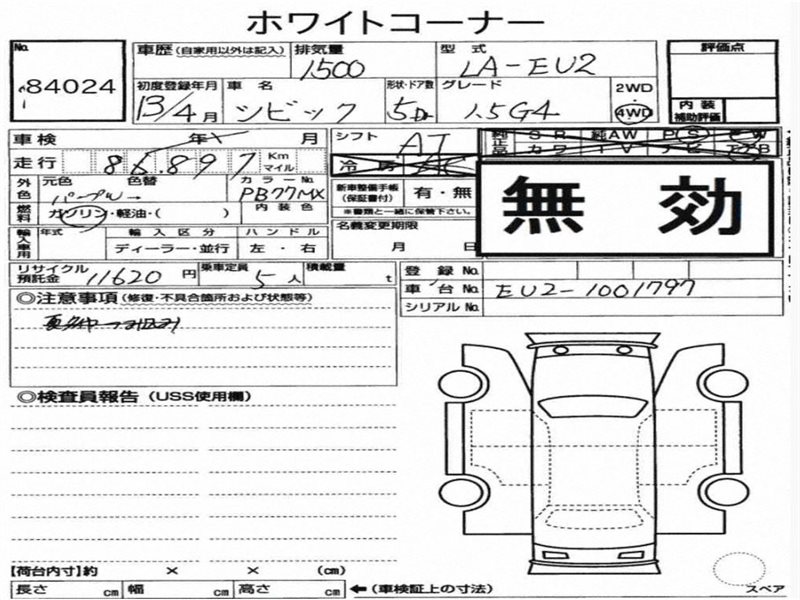 ホワイトコーナー
No. 84024
車歴 (自家用以外は記入) 排気量 1500 型式 LA-EU2 評価点
初度登録年月 13/4月 車名 シビック 形状・ドア数 5D グレード 1.5G4 2WD 4WD 内装補助評価
車検 年 月 シフト AT 純正品 SR 純AW PS PW
カワ TV ナビ エアB
走行 86.897 Km マイル 冷房
外色 元色 パープル 色替 → カラーNo. PB77MX 新車整備手帳(保証書付) 有・無 無効
燃料 ガソリン・軽油・( ) 内装色 ※書類と一緒に保管下さい。
輸入車用 年式 輸入区分 ハンドル 名義変更期限
ディーラー・並行 左・右 月 日
リサイクル預託金 11620円 乗車定員 5人 積載量 t 登録No.
車台No. EU2-1001797
シリアルNo.
◎注意事項 (修復・不具合箇所および状態等)
◎検査員報告 (USS使用欄)
【荷台内寸】約 × × (cm)
長さ cm 幅 cm 高さ cm ←(車検証上の寸法) スペア